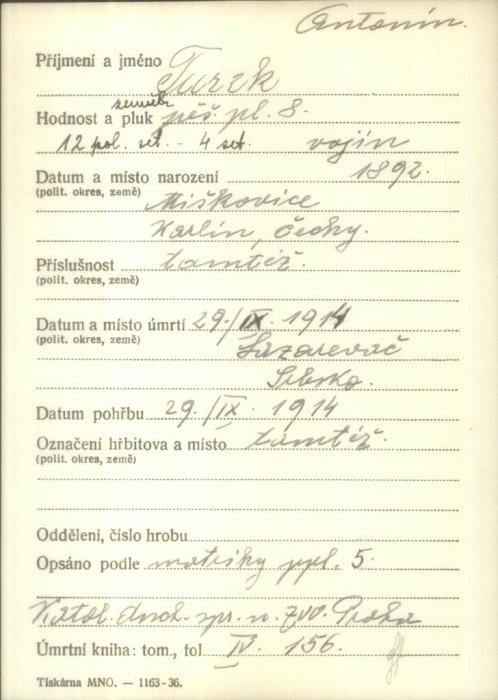 Antonín.
Příjmení a jméno Turek
zeměb.
Hodnost a pluk pěš. pl. 8.
12 pol. set. - 4 set. vojín
Datum a místo narození 1892.
(polit. okres, země) Miškovice
Karlín, Čechy.
Příslušnost tamtéž.
(polit. okres, země)
Datum a místo úmrtí 29./IX. 1914
(polit. okres, země) Lazarevač
Srbsko.
Datum pohřbu 29./IX. 1914
Označení hřbitova a místo tamtéž.
(polit. okres, země)
Oddělení, číslo hrobu
Opsáno podle matriky ppl. 5.
Katol. duch. spr. n. zvv. Praha
Úmrtní kniha: tom., fol IV. 156.
Tiskárna MNO. — 1163-36.